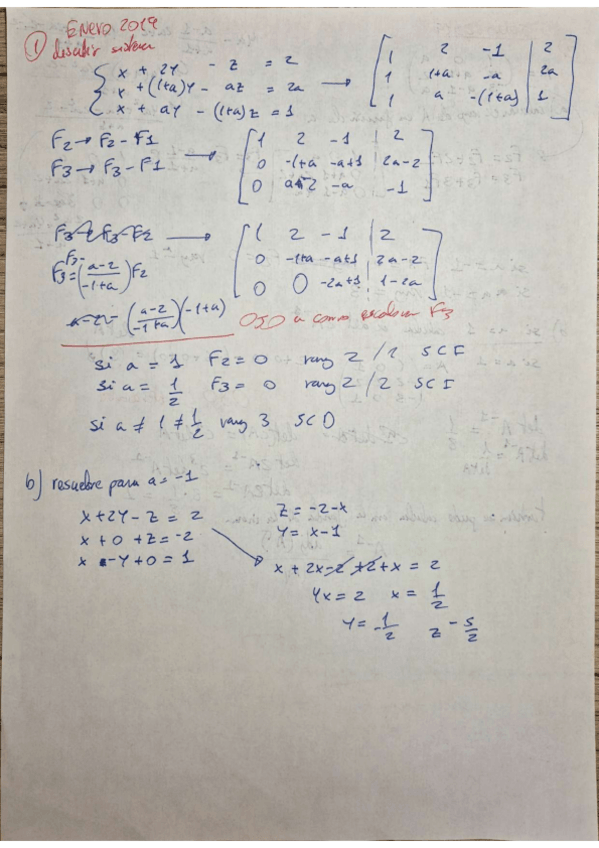 Enero 2019
① discutir sistema
x + 2y - z = 2
x + (1+a)y - az = 2a
x + ay - (1+a)z = 1
→
1 2 -1 | 2
1 1+a -a | 2a
1 a -(1+a) | 1
F2 → F2 - F1
F3 → F3 - F1
→
1 2 -1 | 2
0 -1+a -a+1 | 2a-2
0 a-2 -a | -1
F3 - F2
→
F3 = F3 - (a-2 / -1+a) F2
1 2 -1 | 2
0 -1+a -a+1 | 2a-2
0 0 -2a+1 | 1-2a
a-2 - (a-2 / -1+a)(-1+a)
OJO a como escalonar F3
si a = 1 F2 = 0 rang 2 / 2 SCI
si a = 1/2 F3 = 0 rang 2/2 SCI
si a ≠ 1 ≠ 1/2 rang 3 SCD
b) resuelve para a = -1
x + 2y - z = 2
x + 0 + z = -2
x - y + 0 = 1
z = -2 - x
y = x - 1
x + 2x - 2 + 2 + x = 2
4x = 2 x = 1/2
y = -1/2 z - 5/2